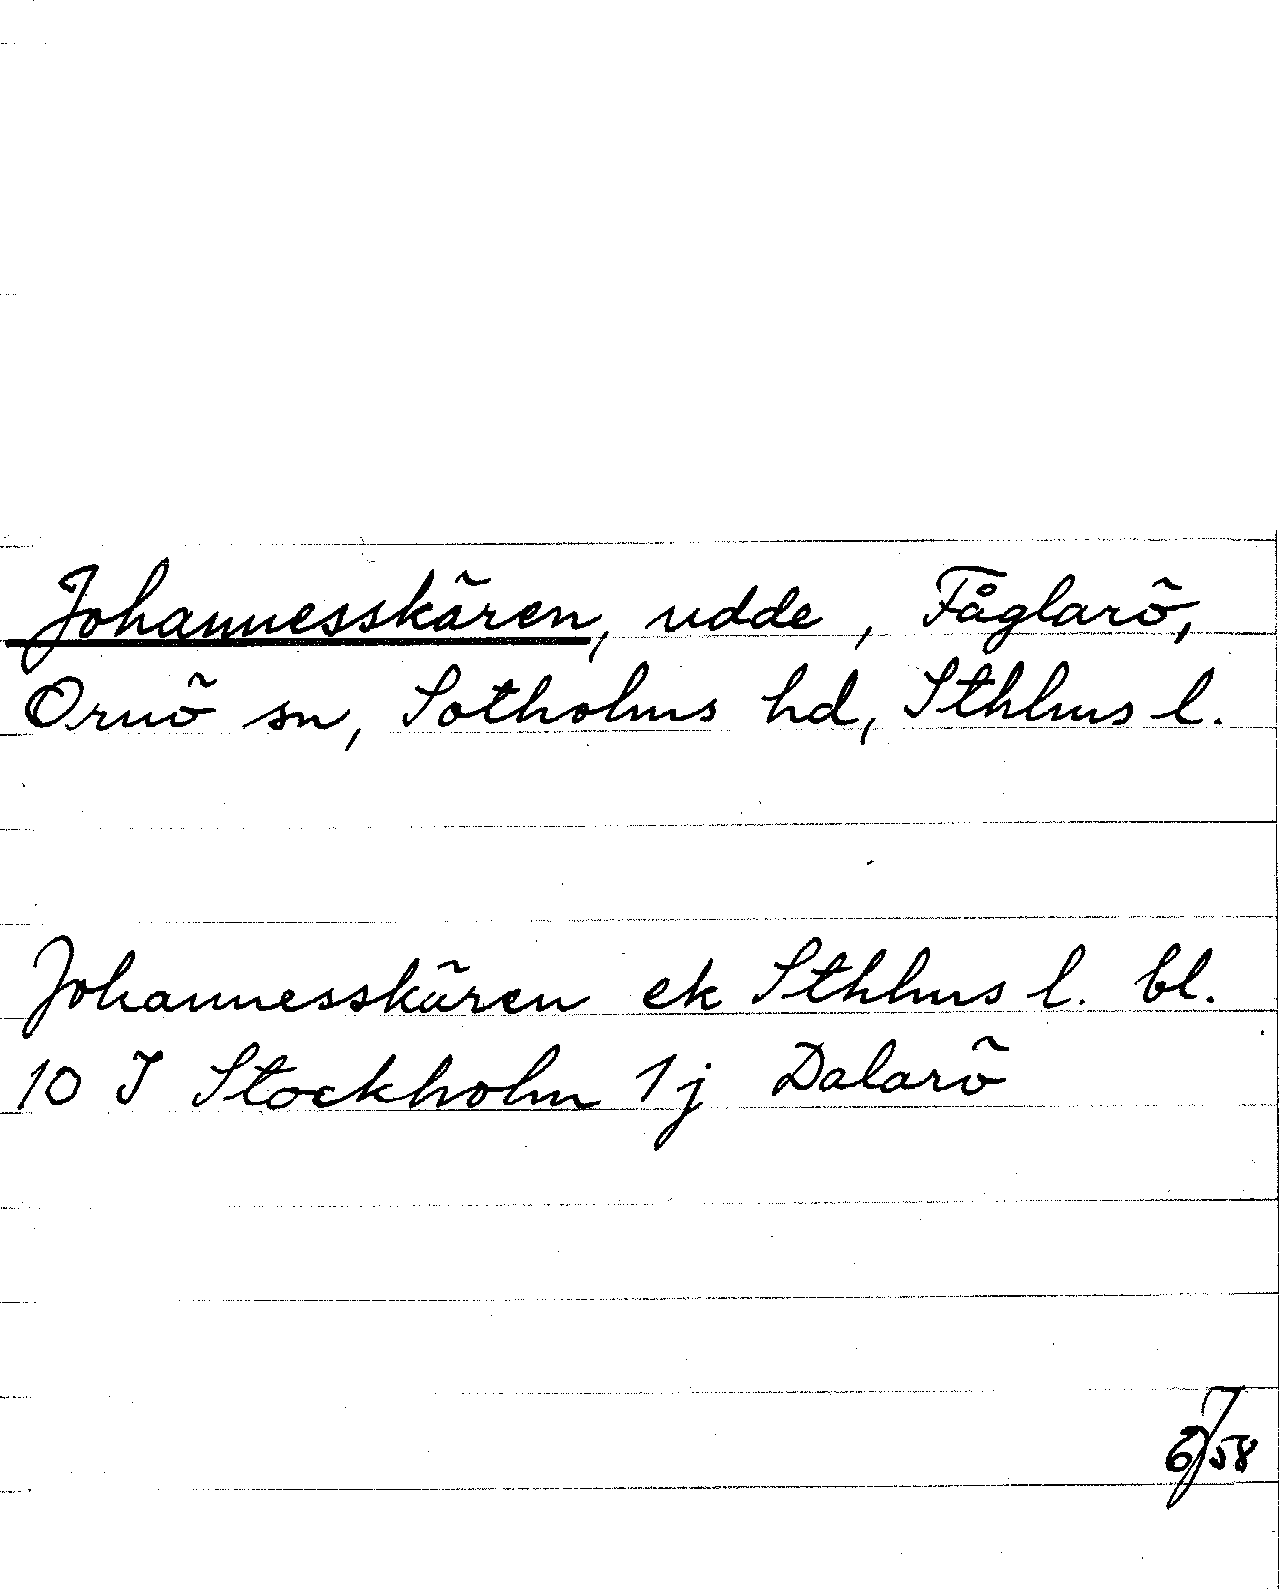 Johannesskären, udde, Fåglarö,
Ornö sn, Sotholms hd, Sthlms l.
Johannesskären ek Sthlms l. bl.
10 I Stockholm 1j Dalarö
58